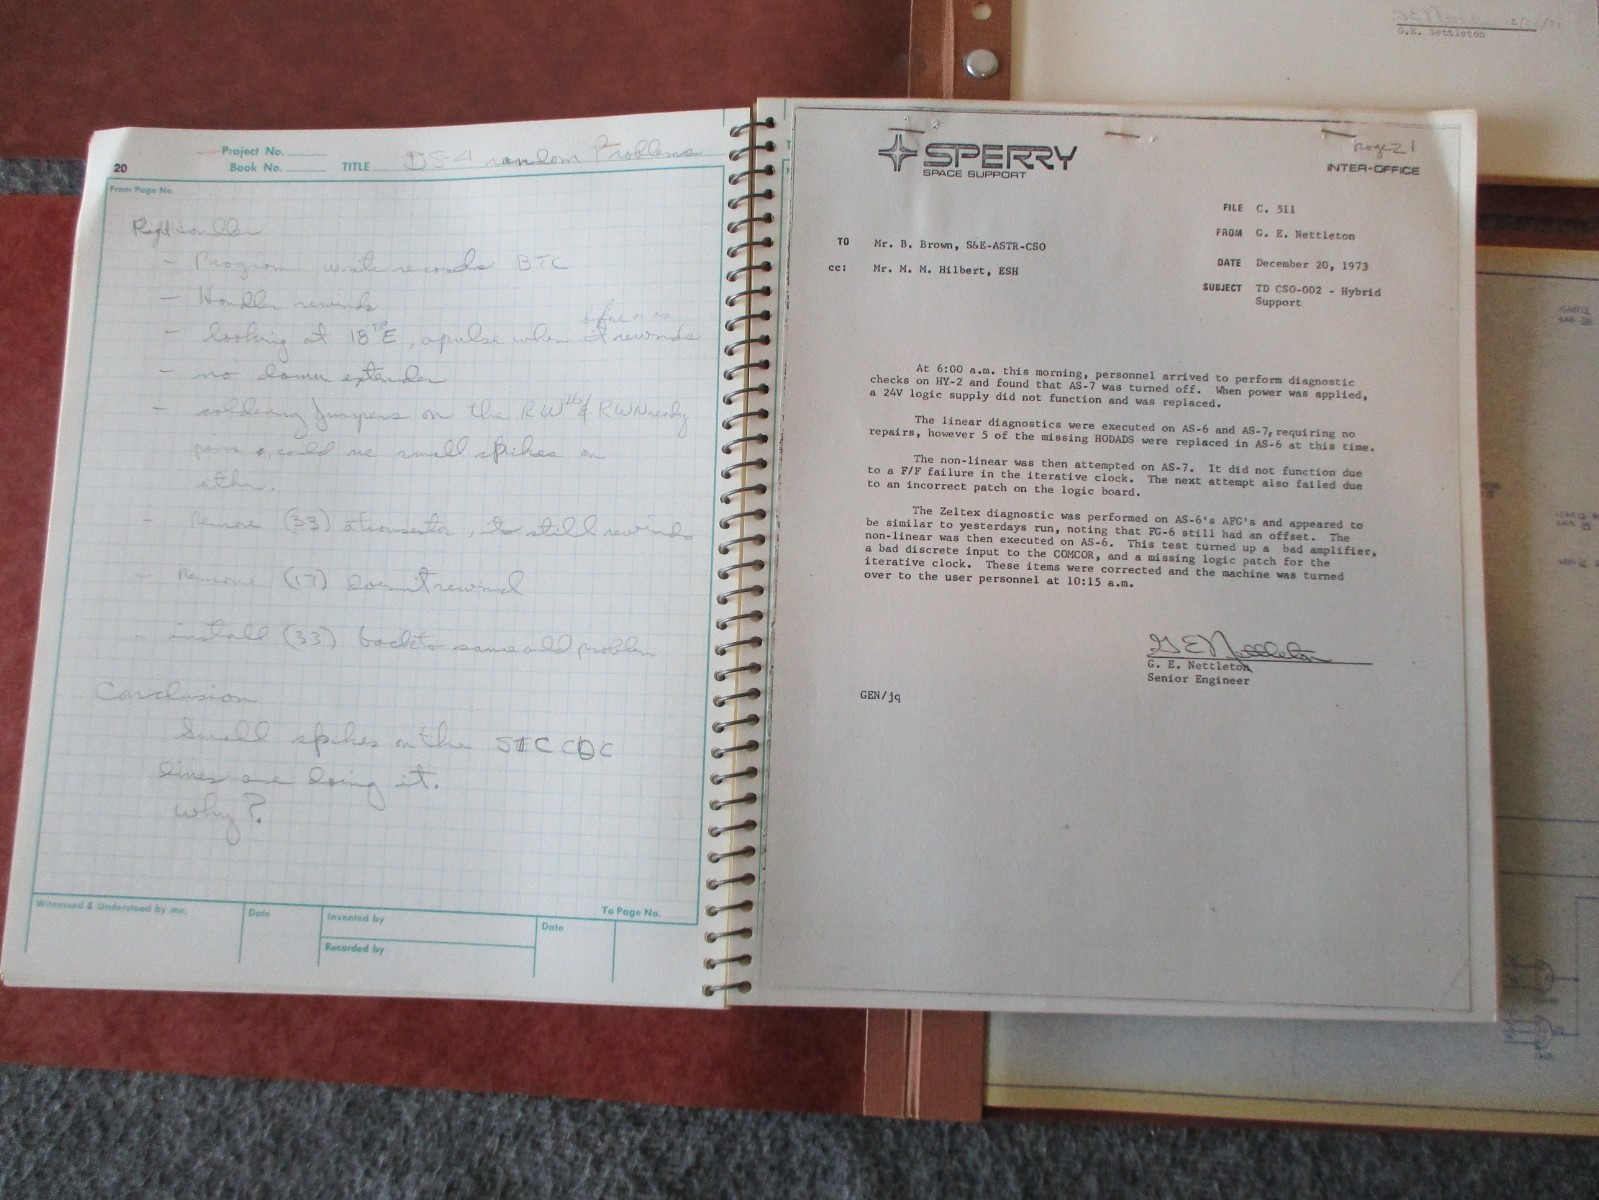 20
Project No.
Book No.
TITLE DS-4 random Problems
From Page No.
Right Handler
- Program write records BTC
- Handler rewinds
- looking at 18 E, a pulse when it rewinds
- no down extender
- soldering jumpers on the RW & RWNready
could see small spikes on
either.
- Remove (33) it still rewinds
- Remove (17) doesn't rewind
- install (33) back to same old problem
Conclusion
Small spikes on the
lines are doing it.
why?
Witnessed & Understood by me,
Date
Invented by
Recorded by
Date
To Page No.
SPERRY
SPACE SUPPORT
page 21
INTER-OFFICE
FILE C. 511
FROM G. E. Nettleton
TO Mr. B. Brown, S&E-ASTR-CSO
DATE December 20, 1973
cc: Mr. M. M. Hilbert, ESH
SUBJECT TD CSO-002 - Hybrid
Support
At 6:00 a.m. this morning, personnel arrived to perform diagnostic
checks on HY-2 and found that AS-7 was turned off. When power was applied,
a 24V logic supply did not function and was replaced.
The linear diagnostics were executed on AS-6 and AS-7, requiring no
repairs, however 5 of the missing HODADS were replaced in AS-6 at this time.
The non-linear was then attempted on AS-7. It did not function due
to a F/F failure in the iterative clock. The next attempt also failed due
to an incorrect patch on the logic board.
The Zeltex diagnostic was performed on AS-6's AFG's and appeared to
be similar to yesterdays run, noting that FG-6 still had an offset. The
non-linear was then executed on AS-6. This test turned up a bad amplifier,
a bad discrete input to the COMCOR, and a missing logic patch for the
iterative clock. These items were corrected and the machine was turned
over to the user personnel at 10:15 a.m.
G E Nettleton
G. E. Nettleton
Senior Engineer
GEN/jq
G.E. Nettleton